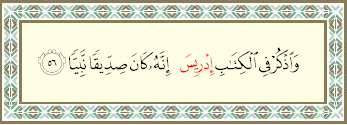 وَٱذْكُرْ فِى ٱلْكِتَـٰبِ إِدْرِيسَ إِنَّهُۥ كَانَ صِدِّيقًا نَّبِيًّا ﴿٥٦﴾